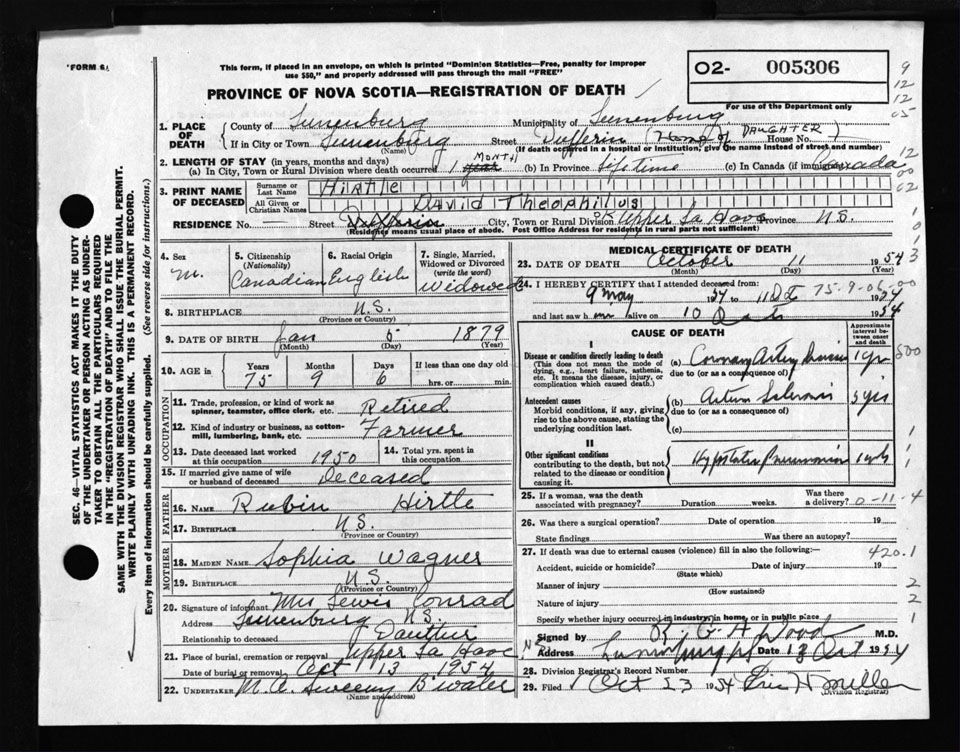 FORM 6
This form, if placed in an envelope, on which is printed "Dominion Statistics—Free, penalty for improper use $50," and properly addressed will pass through the mail "FREE"
O2- 005306
PROVINCE OF NOVA SCOTIA—REGISTRATION OF DEATH
For use of the Department only
9
12
12
05
SEC. 46—VITAL STATISTICS ACT MAKES IT THE DUTY OF THE UNDERTAKER OR PERSON ACTING AS UNDERTAKER TO OBTAIN ALL THE PARTICULARS REQUIRED IN THE "REGISTRATION OF DEATH" AND TO FILE THE SAME WITH THE DIVISION REGISTRAR WHO SHALL ISSUE THE BURIAL PERMIT.
WRITE PLAINLY WITH UNFADING INK. THIS IS A PERMANENT RECORD.
Every item of information should be carefully supplied. (See reverse side for instructions.)
1. PLACE OF DEATH
County of Lunenburg Municipality of Lunenburg
If in City or Town Lunenburg Street Dufferin (Home of DAUGHTER) House No.
(Name) (If death occurred in a hospital or institution, give the name instead of street and number)
2. LENGTH OF STAY (in years, months and days)
(a) In City, Town or Rural Division where death occurred 1 year MONTH (b) In Province lifetime (c) In Canada (if immigrant) Canada
12
00
02
3. PRINT NAME OF DECEASED
Surname or Last Name Hirtle
All Given or Christian Names David Theophilus
RESIDENCE No. — Street Dufferin City, Town or Rural Division Upper La Have Province N.S.
(Residence means usual place of abode. Post Office Address for residents in rural parts not sufficient)
4. Sex M.
5. Citizenship (Nationality) Canadian
6. Racial Origin English
7. Single, Married, Widowed or Divorced (write the word) Widowed
8. BIRTHPLACE N.S.
(Province or Country)
9. DATE OF BIRTH Jan 5 1879
(Month) (Day) (Year)
10. AGE in Years Months Days If less than one day old
75 9 6 hrs. or min.
OCCUPATION
11. Trade, profession, or kind of work as spinner, teamster, office clerk, etc. Retired
12. Kind of industry or business, as cotton-mill, lumbering, bank, etc. Farmer
13. Date deceased last worked at this occupation 1950
14. Total yrs. spent in this occupation
15. If married give name of wife or husband of deceased Deceased
FATHER
16. Name Rubin Hirtle
17. Birthplace N.S.
(Province or Country)
MOTHER
18. MAIDEN NAME Sophia Wagner
19. BIRTHPLACE N.S.
(Province or Country)
20. Signature of informant Mrs Lewis Conrad
Address Lunenburg N.S.
Relationship to deceased Dauther
21. Place of burial, cremation or removal Upper La Have
Date of burial or removal Oct 13 1954
22. UNDERTAKER M. A. Sweeny B'water
(Name and address)
MEDICAL CERTIFICATE OF DEATH
23. DATE OF DEATH October 11 1954
(Month) (Day) (Year)
24. I HEREBY CERTIFY that I attended deceased from:
9 May 1954 to 11 Oct 1954
75-9-06-00
and last saw him alive on 10 Oct 1954
CAUSE OF DEATH
Approximate interval between onset and death
I
Disease or condition directly leading to death
(This does not mean the mode of dying, e.g., heart failure, asthenia, etc. It means the disease, injury, or complication which caused death.)
(a) Coronary Artery 1 yr
due to (or as a consequence of)
500
Antecedent causes
Morbid conditions, if any, giving rise to the above cause, stating the underlying condition last.
(b) 5 yrs
due to (or as a consequence of)
(c)
II
Other significant conditions contributing to the death, but not related to the disease or condition causing it.
Hypostatic Pneumonia 1 wk
25. If a woman, was the death associated with pregnancy? Duration weeks. Was there a delivery? 0-11-4
26. Was there a surgical operation? Date of operation 19
State findings Was there an autopsy?
27. If death was due to external causes (violence) fill in also the following:— 420.1
Accident, suicide or homicide? Date of injury 19
(State which)
Manner of injury 2
(How sustained)
Nature of injury 2
Specify whether injury occurred in industry, in home, or in public place 1
Signed by R. G. A. Wood M.D.
Address Lunenburg NS Date 13 Oct 1954
28. Division Registrar's Record Number
29. Filed Oct 23 1954
(Division Registrar)